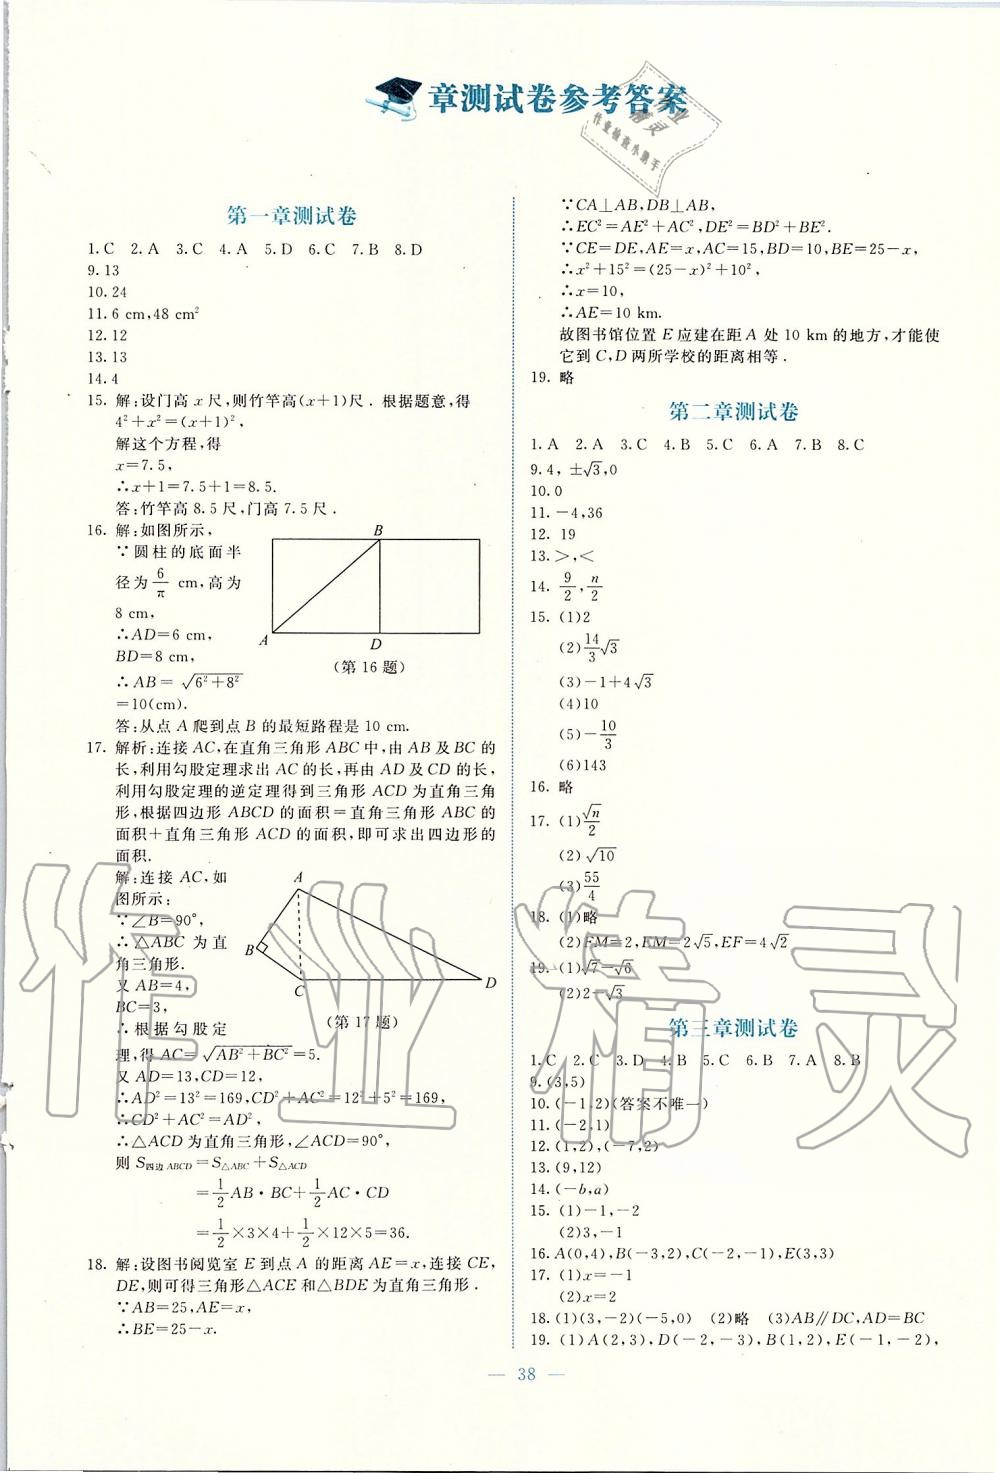 章测试卷参考答案
作业
精灵
作业检查小助手
第一章测试卷
1.C 2.A 3.C 4.A 5.D 6.C 7.B 8.D
9.13
10.24
11.6 cm,48 cm²
12.12
13.13
14.4
15. 解:设门高 x 尺,则竹竿高(x+1)尺. 根据题意,得
4²+x²=(x+1)²,
解这个方程,得
x=7.5,
∴x+1=7.5+1=8.5.
答:竹竿高 8.5 尺,门高 7.5 尺.
16. 解:如图所示,
∵圆柱的底面半
径为 6/π cm,高为
8 cm,
∴AD=6 cm,
BD=8 cm,
∴AB= √(6²+8²)
=10(cm).
答:从点 A 爬到点 B 的最短路程是 10 cm.
B
A
D
(第 16 题)
17. 解析:连接 AC,在直角三角形 ABC 中,由 AB 及 BC 的
长,利用勾股定理求出 AC 的长,再由 AD 及 CD 的长,
利用勾股定理的逆定理得到三角形 ACD 为直角三角
形,根据四边形 ABCD 的面积=直角三角形 ABC 的
面积+直角三角形 ACD 的面积,即可求出四边形的
面积.
解:连接 AC,如
图所示:
∵∠B=90°,
∴△ABC 为直
角三角形.
又 AB=4,
BC=3,
∴根据勾股定
理,得 AC=√(AB²+BC²)=5.
A
B
C
D
(第 17 题)
又 AD=13,CD=12,
∴AD²=13²=169,CD²+AC²=12²+5²=169,
∴CD²+AC²=AD²,
∴△ACD 为直角三角形,∠ACD=90°,
则 S四边ABCD=S△ABC+S△ACD
=1/2 AB·BC+1/2 AC·CD
=1/2×3×4+1/2×12×5=36.
18. 解:设图书阅览室 E 到点 A 的距离 AE=x,连接 CE,
DE,则可得三角形△ACE 和△BDE 为直角三角形.
∵AB=25,AE=x,
∴BE=25-x.
∵CA⊥AB,DB⊥AB,
∴EC²=AE²+AC²,DE²=BD²+BE².
∵CE=DE,AE=x,AC=15,BD=10,BE=25-x,
∴x²+15²=(25-x)²+10²,
∴x=10,
∴AE=10 km.
故图书馆位置 E 应建在距 A 处 10 km 的地方,才能使
它到 C,D 两所学校的距离相等.
19. 略
第二章测试卷
1.A 2.A 3.C 4.B 5.C 6.A 7.B 8.C
9.4, ±√3,0
10.0
11.-4,36
12. 19
13.>,<
14. 9/2,n/2
15.(1)2
(2)14/3√3
(3)-1+4√3
(4)10
(5)-10/3
(6)143
16. 略
17.(1)√n/2
(2)√10
(3)55/4
18.(1)略
(2)FM=2,EM=2√5,EF=4√2
19.(1)√7-√6
(2)2-√3
第三章测试卷
1.C 2.C 3.D 4.B 5.C 6.B 7.A 8.B
9.(3,5)
10.(-1,2)(答案不唯一)
11.(-2,1)
12.(1,2),(-7,2)
13.(9,12)
14.(-b,a)
15.(1)-1,-2
(2)3,-1
16.A(0,4),B(-3,2),C(-2,-1),E(3,3)
17.(1)x=-1
(2)x=2
18.(1)(3,-2)(-5,0) (2)略 (3)AB∥DC,AD=BC
19.(1)A(2,3),D(-2,-3),B(1,2),E(-1,-2),
— 38 —
作业精灵